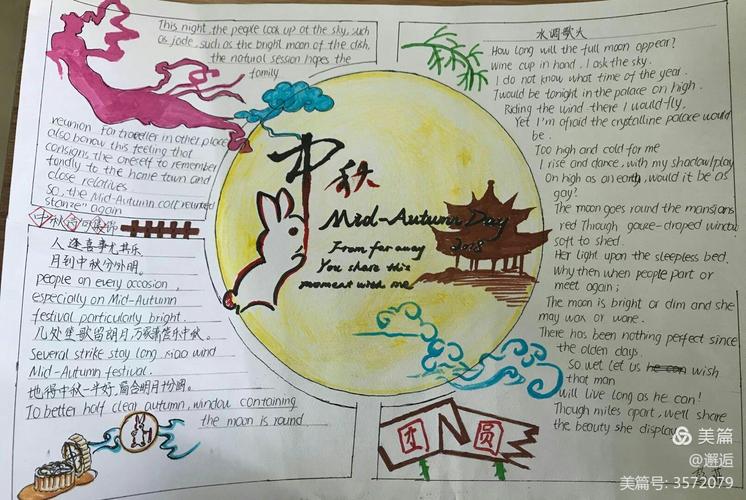 This night, the people look up at the sky, such
as jade, such as the bright moon of the dish,
the natural session hopes the
family
reunion. Far traveller in other place
also borrow this feeling that
consigns the oneself to remember
fondly to the home town and
close relatives
So, the Mid-Autumn call reunited
stanza" again
中秋
人逢喜事尤其乐
月到中秋分外明。
people on every occasion,
especially on Mid-Autumn
festival particularly bright.
几处笙歌留朗月,万家箫管乐中秋。
Several strike stay long, xiao wind
Mid-Autumn festival.
地得中秋一半好,窗含明月十分圆。
To better half clear autumn, window containing
the moon is round
中秋
Mid-Autumn Day
2018
From far away
You share this
moment with me
水调歌头
How long will the full moon appear?
Wine cup in hand. I ask the sky.
I do not know what time of the year.
I would be tonight in the palace on high.
Riding the wind there I would fly,
Yet I'm afraid the crystalline palace would
be.
Too high and cold for me
I rise and dance, with my shadow play
On high as on earth, would it be as
gay?
The moon goes round the mansions
red Through gauze-draped window
soft to shed.
Her light upon the sleepless bed.
Why then when people part or
meet again;
The moon is bright or dim and she
may wax or wane.
There has been nothing perfect since
the olden days.
So wet let us he can wish
that man
will live long as he can!
Though miles apart, we'll share
the beauty she display
团
圆
美篇
@邂逅
美篇号: 3572079